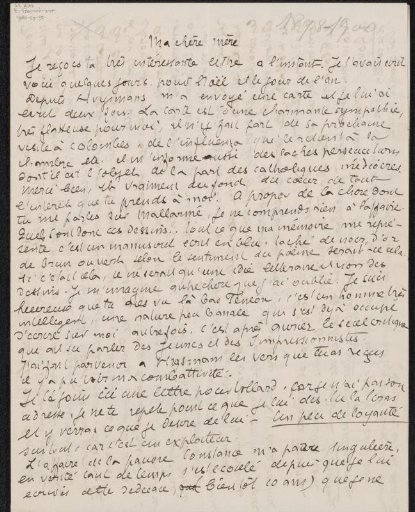 Ma chère mère
Je reçois ta très intéressante lettre à l'instant, Je t'avais écrit
voici quelques jours pour Noël et le jour de l'an.
Depuis Huysmans m'a envoyé une carte et je lui ai
écrit deux fois. La carte est d'une charmante sympathie,
très flatteuse pour moi, il m'y fait part de sa prochaine
visite à Colombes, de l'influenza qui le retient à la
chambre etc. il m'informe aussi des lâches persécutions
dont il est l'objet de la part des catholiques médiocres,
Merci bien, et vraiment du fond du cœur de tout
l'intérêt que tu prends à moi. A propos de la chose dont
tu me parles sur Mallarmé, je ne comprends rien à l'affaire
Quels sont donc ces dessins. Tout ce que ma mémoire me repré-
sente c'est un manuscrit écrit en bleu, taché de noir, d'or
de brun ou vert selon le sentiment du poème serait-ce cela
si c'était cela, ce ne serait qu'une idée littéraire et non des
dessins. Je m'imagine autre chose que j'ai oublié. Je suis
heureux que tu aies vu là bas Fénéon, c'est un homme très
intelligent, une nature peu banale qui s'est déjà occupé
d'écrire sur moi autrefois. C'est après Aurier le seul critique
que ait su parler des Jeunes et des Impressionnistes
J'ai fait parvenir à les vers que tu as reçus
je n'y ai pu voir ma combattivité.
Je te joins ici une lettre pour Vollard, car je n'ai pas son
adresse, je ne te répète point ce que je lui dis. tu la liras
et y verras ce que je désire de lui - un peu de loyauté
surtout, car c'est un exploiteur
L'affaire de la pauvre Constance m'a parue singulière,
en vérité tant de temps s'est écoulé depuis que je lui
écrivis cette dédicace (bientôt 10 ans) que je ne